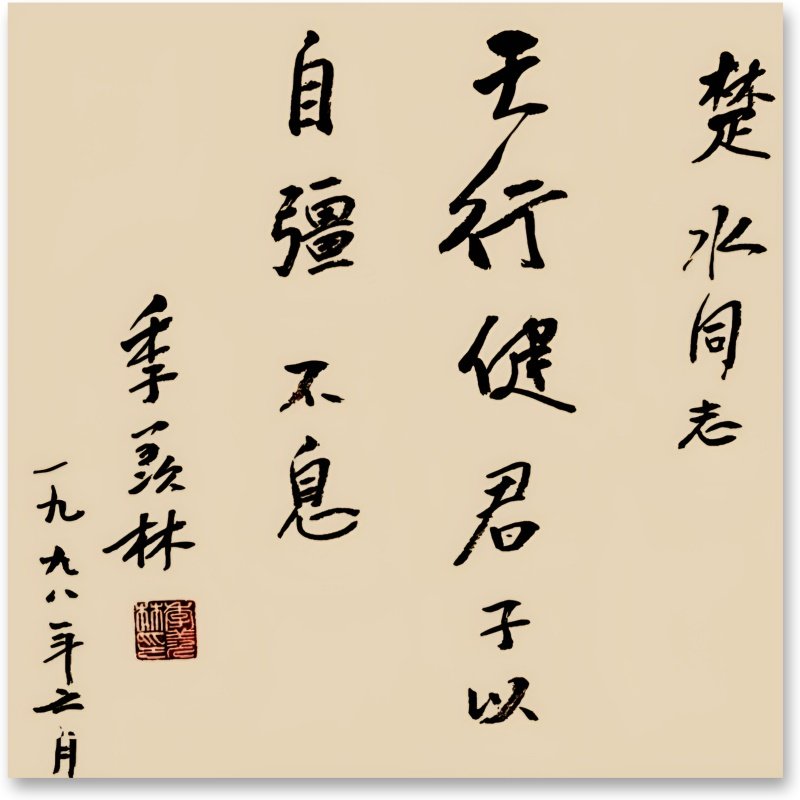 楚水同志
天行健君子以
自彊不息
季羡林
一九九八年六月
季羡林印